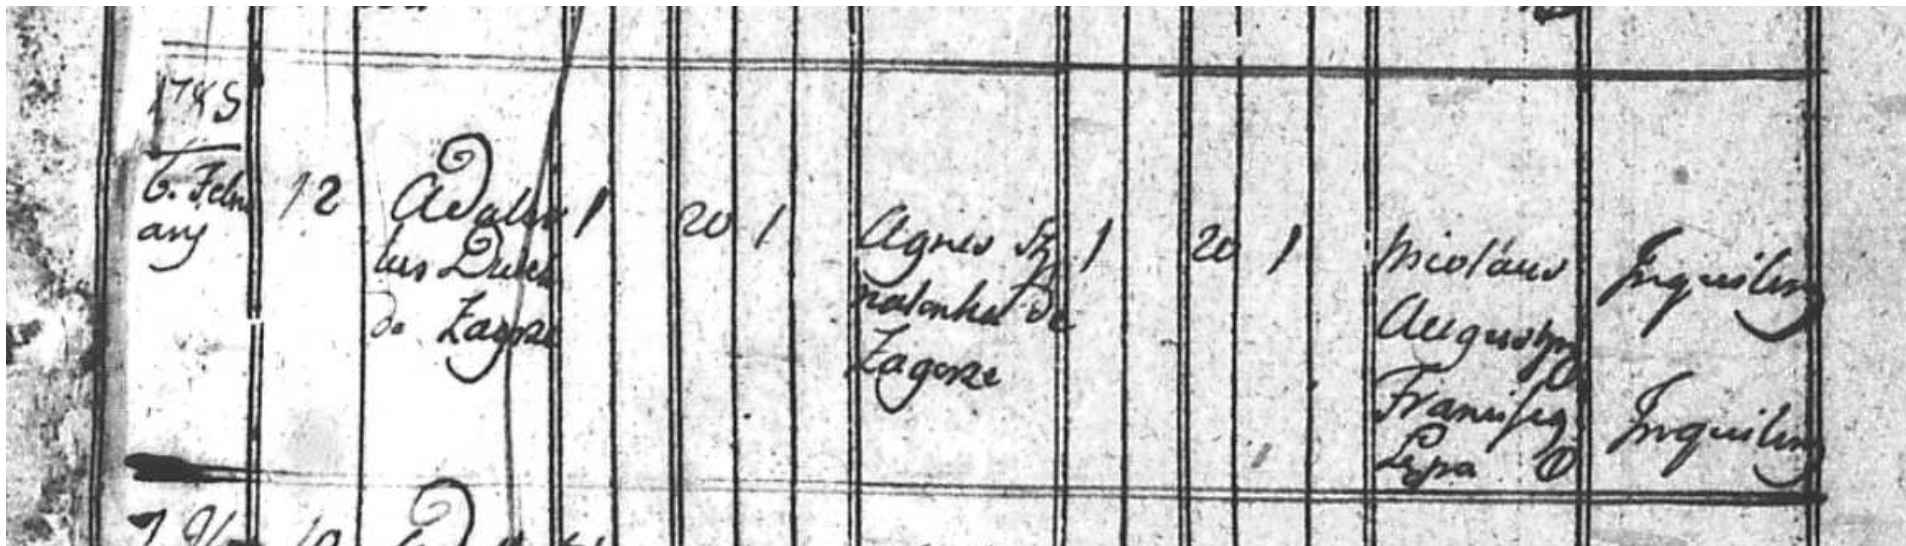 1785
6. Febru
arij
12
Adalber
tus Dudek
de Zagorze
1
20 1
Agnes
de
Zagorze
1
20 1
Nicolaus
Augustyn
Franciscus
Lepa
Inquilini
Inquilini